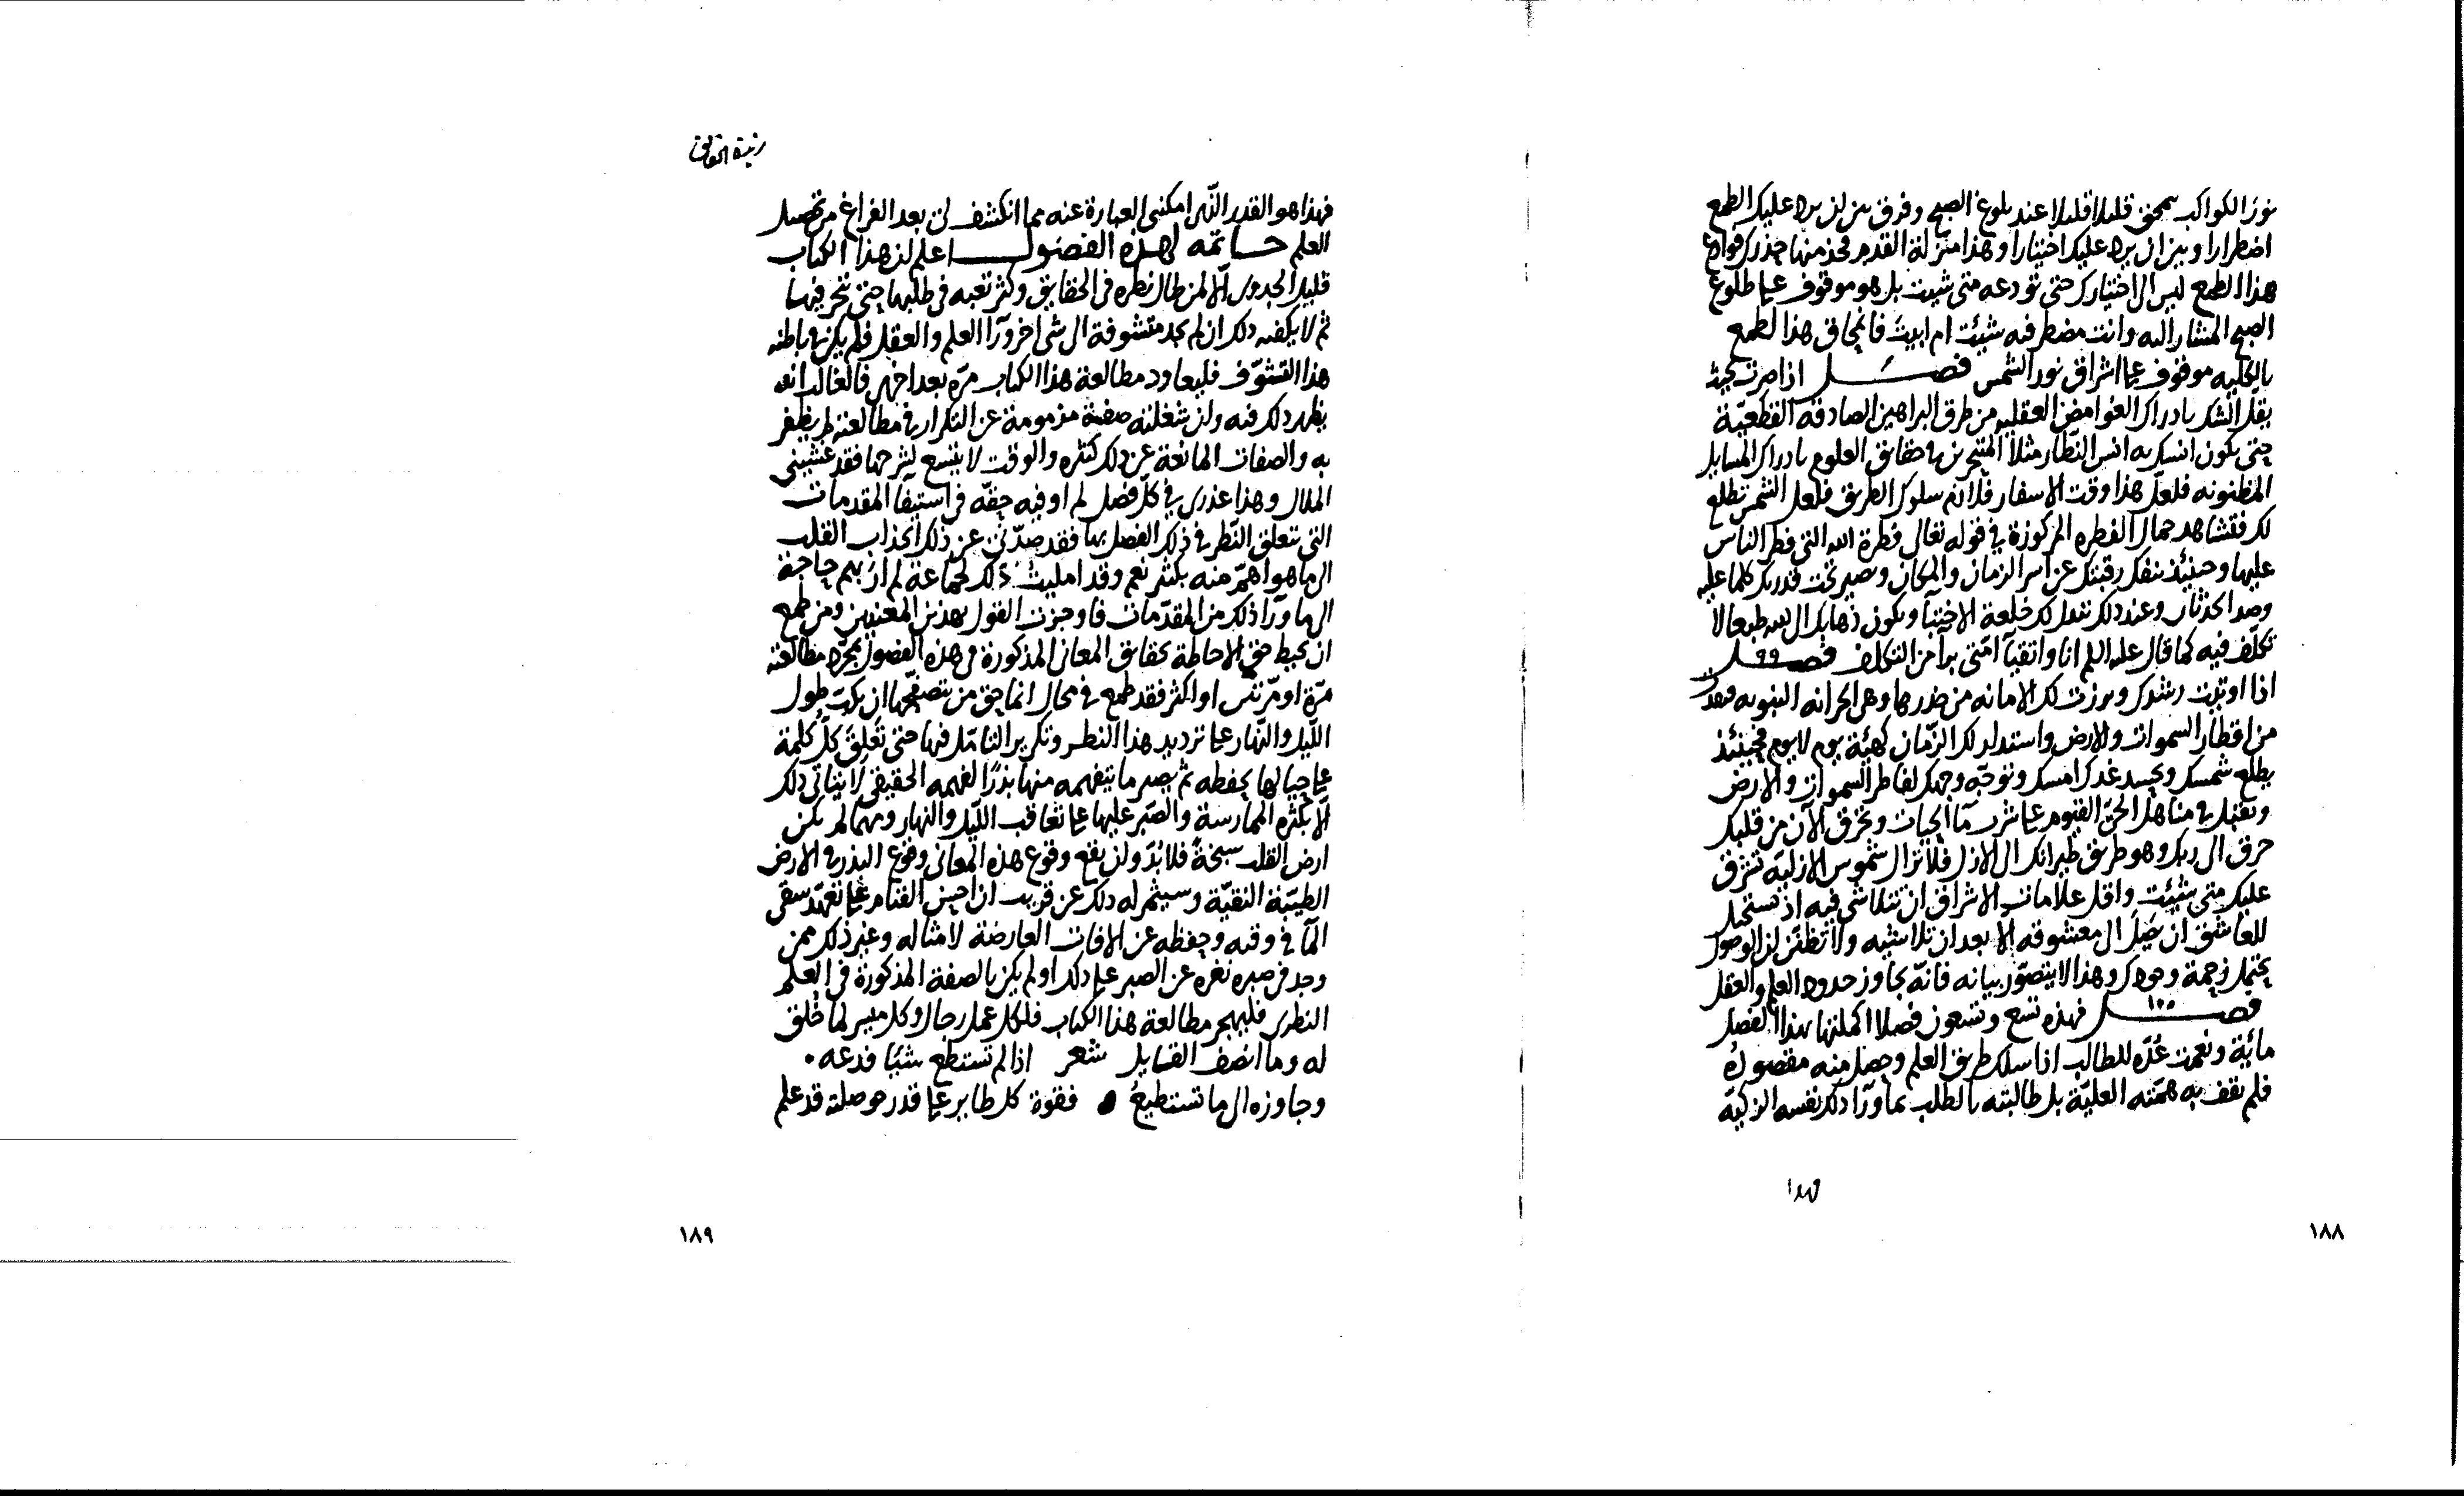 نور الكواكب ينمحق قليلا قليلا عند بلوغ الصبح وفرق بين ان يرد عليك الطمع
اضطرارا وبين ان يرد عليك اختيارا وهذا منزلة القدم فخذ منها حذرك فوداع
هذا الطمع ليس الى اختيارك حتى تودعه متى شئت بل هو موقوف على طلوع
الصبح المشار اليه وانت مضطر فيه شئت ام ابيت فانمحاق هذا الطمع
بالكليه موقوف على اشراق نور الشمس فصل اذا صرت بحيث
يقل انسك بادراك الغوامض العقليه من طرق البراهين الصادقه القطعيّة
حتى يكون انسك به انس النظار مثلا المتبحرين في حقايق العلوم بادراك المسايل
المظنونه فلعلّ هذا وقت الاسفار فلازم سلوك الطريق فلعل الشمس تطلع
لك فتشاهد جمال الفطره المركوزة في قوله تعالى فطرة الله التى فطر الناس
عليها وحينئذ تنفك رقبتك عن اسر الزمان والمكان وتصير تحت قدريك كلما عليه
وعند ذلك تبدل لك خلعة الاجتبآ ويكون ذهابك الى الله طبعا لا
تكلف فيه كما قال عليه السلم انا واتقيآ امتى برآ من التكلف فصل ٩٩
اذا اوتيت رشدك وبرزت لك الامانه من خدرها وهى الحرانه النبويه فقد
من اقطار السموات والارض واستدار لك الزمان كهيئة يوم لا يوم فحينئذ
يطلع شمسك ويحسد غدك امسك وتوجّه وجهك لفاطر السموات والارض
وتقبل في مناهل الحىّ القيوم على شرب مآ الحيات ويخرق الآن من قلبك
خرق الى ربك وهو طريق طيرانك الى الازل فلا تزال شموس الازلية تشرق
عليك متى شئت واقل علامات الاشراق ان تتلاشى فيه اذ يستحيل
للعاشق ان يصل الى معشوقه الا بعد ان تلاشيه ولا تظنن ان الوصول
يحتمل زحمة وجودك وهذا لا يتصوّر بيانه فانّه يجاوز حدود العلم والعقل
فصل ١٠٠ فهذه تسع وتسعون فصلا اكملتها بهذا الفصل
مائية ونعمت عُدّه للطالب اذا سلك طريق العلم وحصل منه مقصوده
فلم تقف به همّته العليّة بل طالبته بالطلب بما ورآ ذلك نفسه الزكيّة
فهذا
١٨٨
زبدة الحقايق
فهذا هو القدر الذى امكننى العبارة عنه مما انكشف لى بعد الفراغ من تحصيل
العلم خاتمه لهذه الفصول اعلم ان هذا الكتاب
قليل الجدوى الّا لمن طال نظره فى الحقايق وكثر تعبه فى طلبها حتى تبحر فيها
ثم لا يكفيه ذلك ان لم يجد متشوفة الى شى اخر ورآ العلم والعقل فلم يكن في باطنه
هذا التشوّف فليعاود مطالعة هذا الكتاب مرّة بعد اخرى فالغالب انه
يظهر ذلك فيه وان شغلته صفة مذمومة عن التكرار في مطالعته لم يظفر
به والصفات المانعة عن ذلك كثيره والوقت لا يتسع لشرحها فقد غشينى
الملال وهذا عذرى في كلّ فصل لم اوفيه حقّه فى استيفآ المقدمات
التى تتعلق النظر في ذلك الفصل بها فقد صدّنى عن ذلك انجذاب القلب
الى ما هو اهمّ منه بكثير نعم وقد امليت ذلك لجماعة لم ار بهم حاجة
الى ما ورآ ذلك من المقدّمات فاوجزت القول بهذين المعنيين ومن طمع
ان يحيط حق الاحاطة بحقايق المعانى المذكورة فى هذه الفصول بمجرّد مطالعته
مرّة او مرّتين او اكثر فقد طمع في محال انما حق من يتصفّحها ان يكبّ طول
الليل والنهار على ترديد هذا النظر وتكرير التامّل فيها حتى تعلق كلّ كلمة
على حيالها بحفظه ثم يصير ما يتفهمه منها بذرا لفهمه الحقيقى لا يتاتى ذلك
الّا بكثره الممارسة والصّبر عليها على تعاقب اللّيل والنهار ومهما لم يكن
ارض القلب سبخةً فلا بُدّ وان يقع وقوع هذه المعانى وقوع البذر في الارض
الطيّبة النقيّة وسيثمر له ذلك عن قريب ان احسن القيام على تعهّد سقى
المآ في وقته وحفظه عن الافات العارضة لامثاله وغير ذلك ممن
وجد فى صبره نفره عن الصبر على ذلك او لم يكن بالصفة المذكورة فى العلم
النظرى فليهجر مطالعة هذا الكتاب فلكل عمل رجال وكل ميسر لما خُلق
له وما انصف القايل شعر اذا لم تستطع شيئا فدعه
وجاوزه الى ما تستطيعُ فقوة كل طاير على قدر حوصلته قد علم
١٨٩